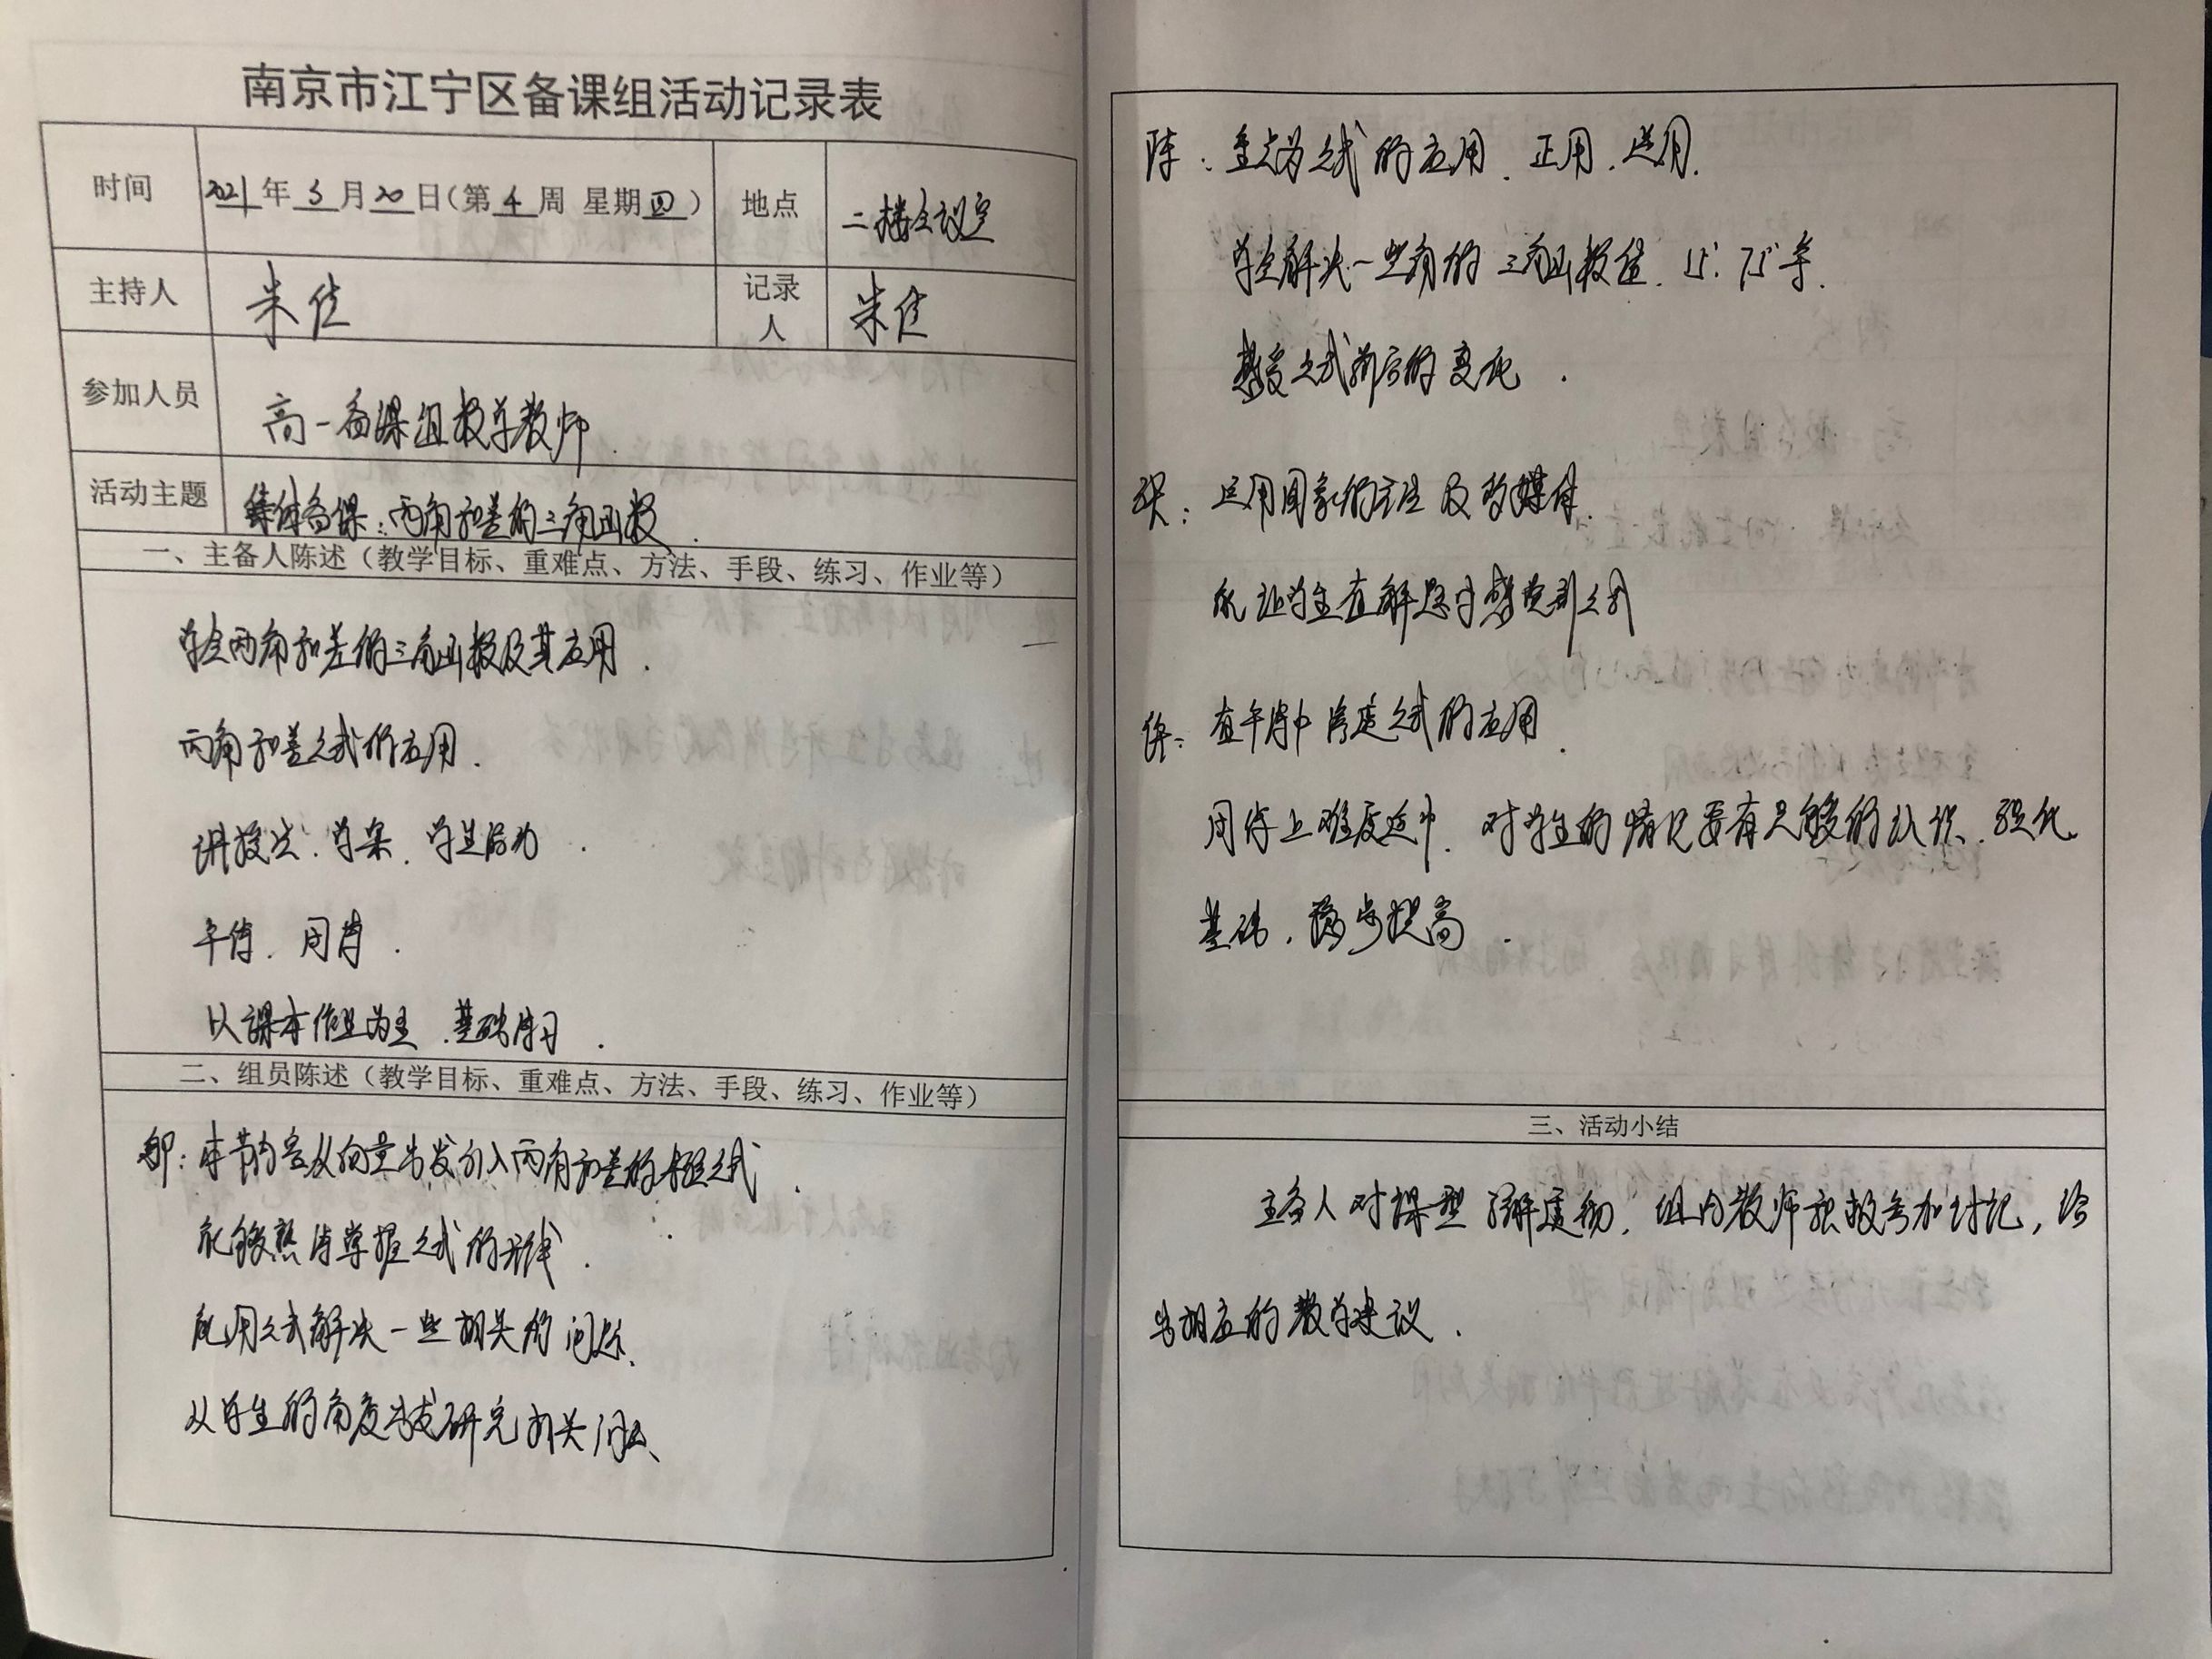 南京市江宁区备课组活动记录表
时间 2021年3月20日(第4周 星期四) 地点 二楼会议室
主持人 朱佳 记录人 朱佳
参加人员 高一备课组数学教师.
活动主题 集体备课:两角和差的三角函数.
一、主备人陈述（教学目标、重难点、方法、手段、练习、作业等）
学会两角和差的三角函数及其应用.
两角和差公式的应用.
讲授法.学案.学生
以课本作业为主.基础练习.
二、组员陈述（教学目标、重难点、方法、手段、练习、作业等）
本节内容从向量出发引入两角和差的余弦公式.
能够熟练掌握公式的形式.
应用公式解决一些相关的问题.
从学生的角度出发研究相关问题.
陈:重点为公式的应用.正用.逆用.
学会解决一些角的三角函数值.15°.75°等.
感受公式前后的变化.
运用图象的方法及多媒体.
能让学生在解题中感觉到公式
在平时中渗透公式的应用.
周练上难度适中.对学生的情况要有足够的认识.强化
基础.稳步提高.
三、活动小结
主备人对课型了解透彻,组内教师积极参加讨论,给
出相应的教学建议.